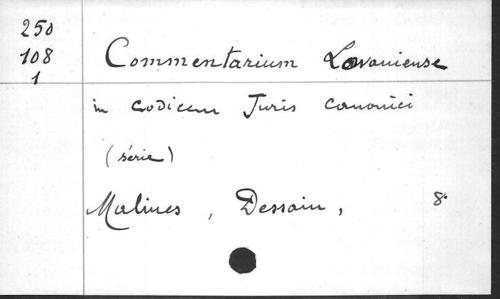 250
108
1
Commentarium Lovaniense
in codicem Juris canonici
(série)
Malines, Dessain, 8°